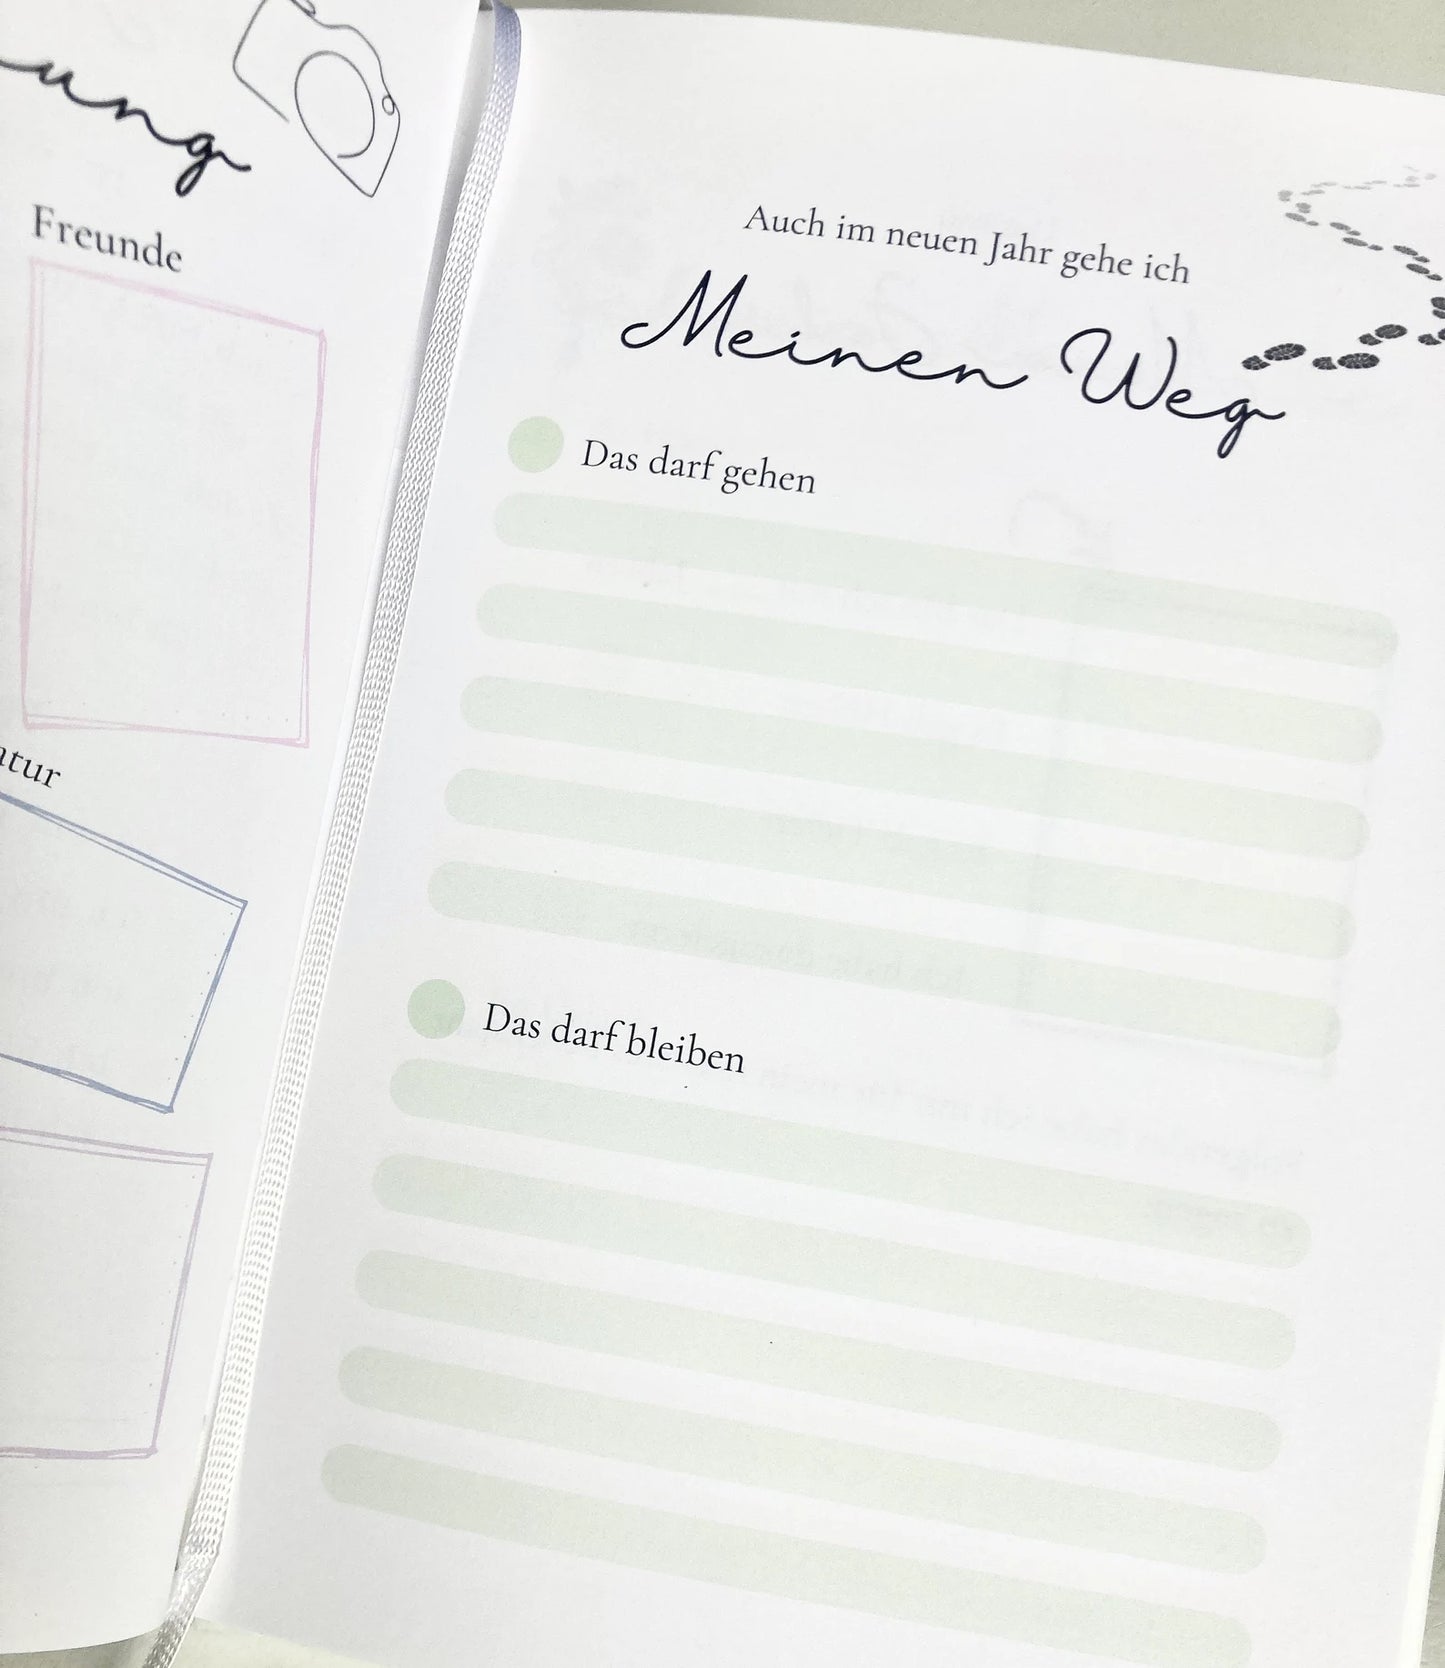 Freunde
Auch im neuen Jahr gehe ich
Meinen Weg
Das darf gehen
Das darf bleiben